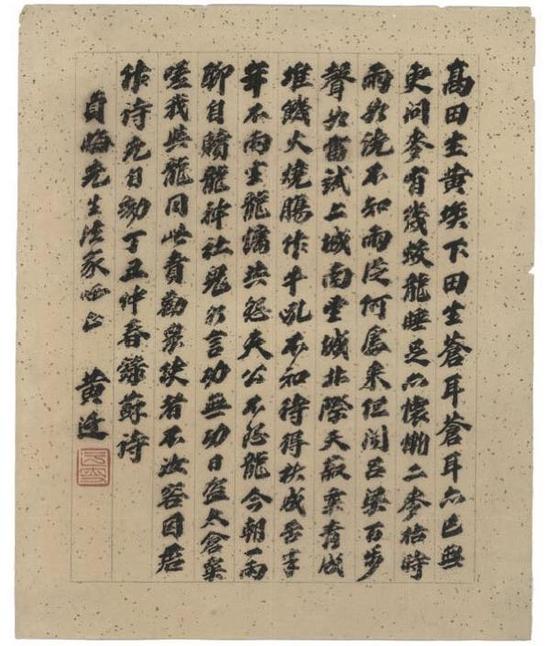 高田生黃埃下田生蒼耳蒼耳亦已無
更問麥有幾蛟龍睡足亦懷慚二麥枯時
雨如洗不知雨從何處來但聞呂梁百步
聲如雷試上城南望城北際天菽粟青成
堆饑火燒腸作牛吼不知待得秋成否半
年不雨坐龍慵共怨天公不怨龍今朝一雨
聊自贖龍神社鬼各言功無功日盜太倉粟
嗟我與龍同此責勸農使者不汝容因君
作詩先自劾丁丑仲春錄蘇詩
貞晦先生法家哂正 黃